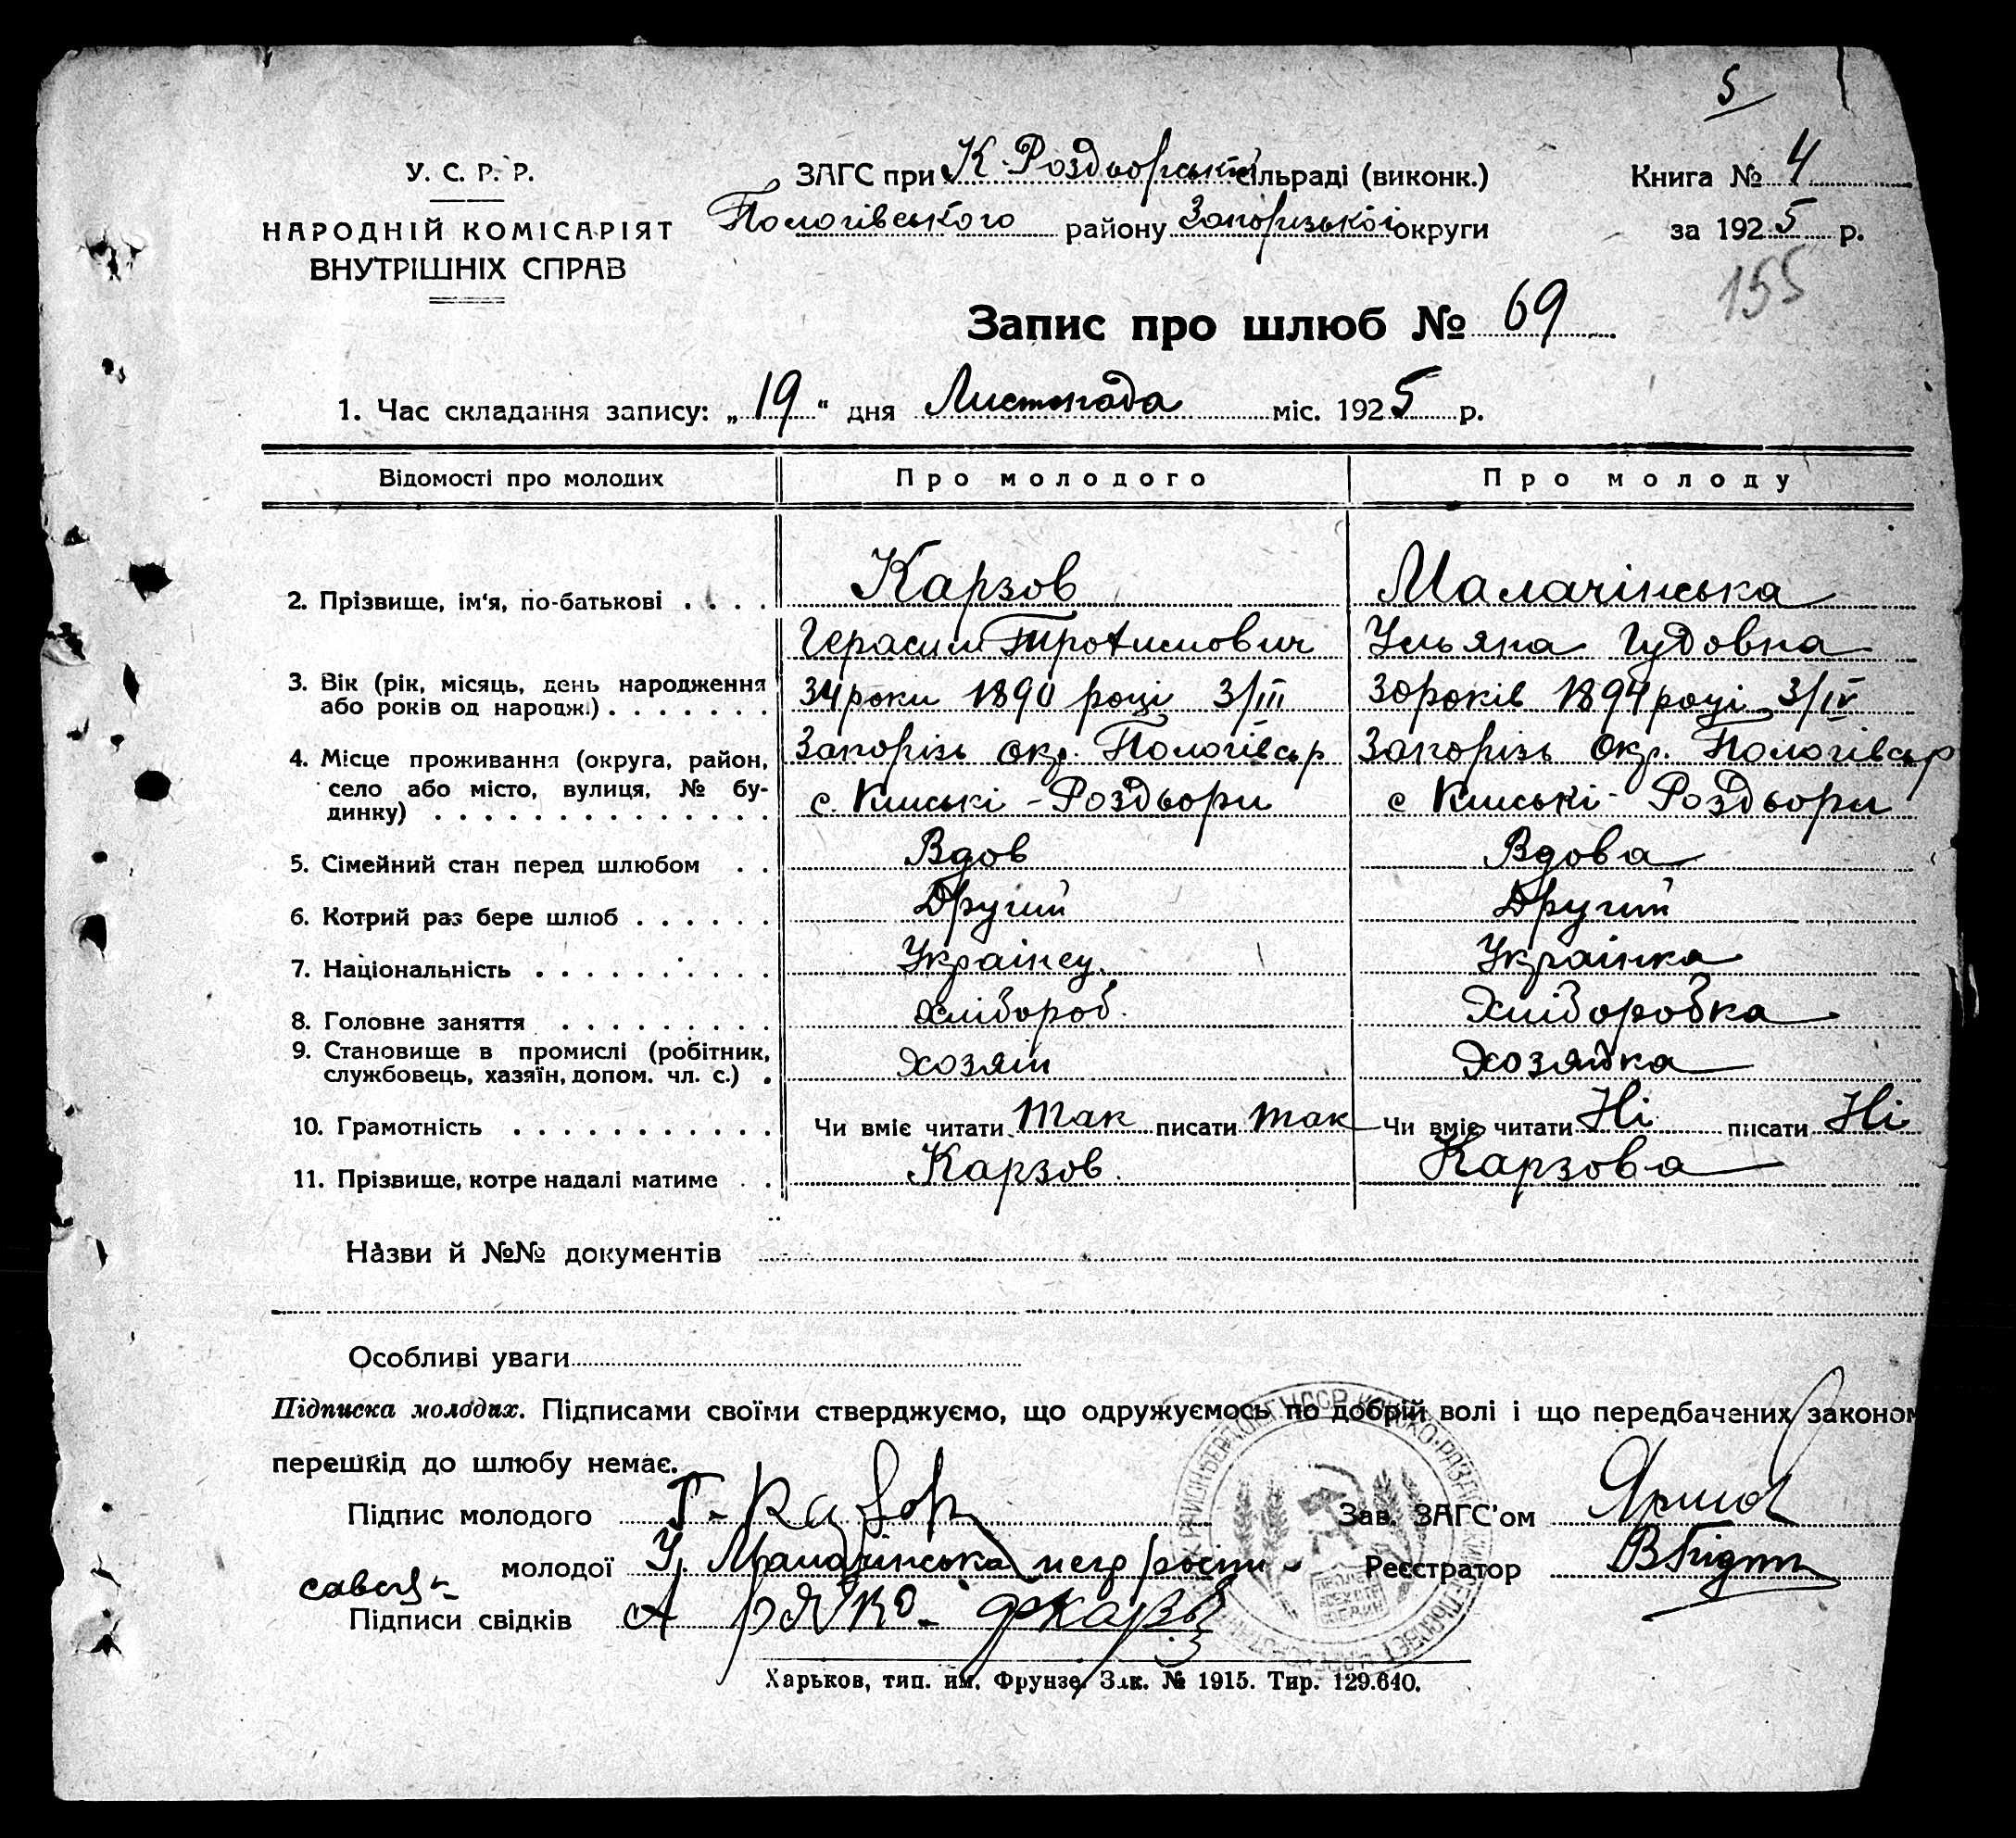 5
У. С. Р. Р.
НАРОДНІЙ КОМІСАРІЯТ
ВНУТРІШНІХ СПРАВ
ЗАГС при К-Роздьорській сільраді (виконк.)
Пологівського району Запорізької округи
Книга № 4
за 1925 р.
155
Запис про шлюб № 69
1. Час складання запису: „ 19 “ дня Листопада міс. 1925 р.
Відомості про молодих Про молодого Про молоду
2. Прізвище, ім'я, по-батькові . . . . Карзов Малачінська
Герасим Ульяна
3. Вік (рік, місяць, день народження
або років од народж.) . . . . . . . 34 роки 1890 році 3/III 30 років 1894 році 3/IV
4. Місце проживання (округа, район,
село або місто, вулиця, № бу-
динку) . . . . . . . . . . . . . .
Запорізь окр. Пологівс р Запорізь Окр. Пологівс р
с. Кінські-Роздьори с Кінські-Роздьори
5. Сімейний стан перед шлюбом . . Вдов Вдова
6. Котрий раз бере шлюб . . . . . . Другий Другий
7. Національність . . . . . . . . . . Українец Українка
8. Головне заняття . . . . . . . . . хлібороб. Хліборобка
9. Становище в промислі (робітник,
службовець, хазяїн, допом. чл. с.) . хозяін Хозяйка
10. Грамотність . . . . . . . . . . . Чи вміє читати так писати так Чи вміє читати Ні писати Ні
11. Прізвище, котре надалі матиме . . Карзов. Карзова
Назви й №№ документів
Особливі уваги
Підписка молодих. Підписами своїми стверджуємо, що одружуємось по добрій волі і що передбачених законом
перешкід до шлюбу немає.
Підпис молодого Г-
Зав. ЗАГС'ом
молодої У. Малачінська
Реєстратор
Підписи свідків
Харьков, тип. им. Фрунзе. Зак. № 1915. Тир. 129.640.